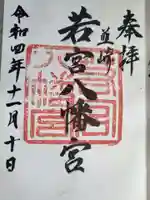 奉拝
韮崎
若宮八幡宮
令和四年十一月十日